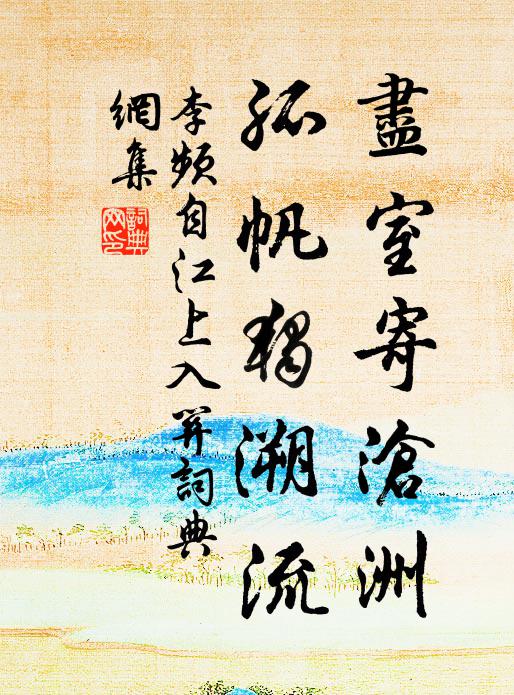 盡室寄滄洲
孤帆獨溯流
李頻自江上入關詞典
網集
詞典
网印